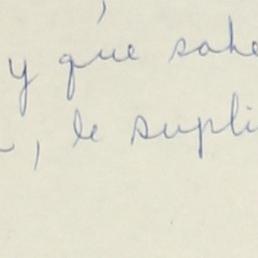 y que sabe
, le supli